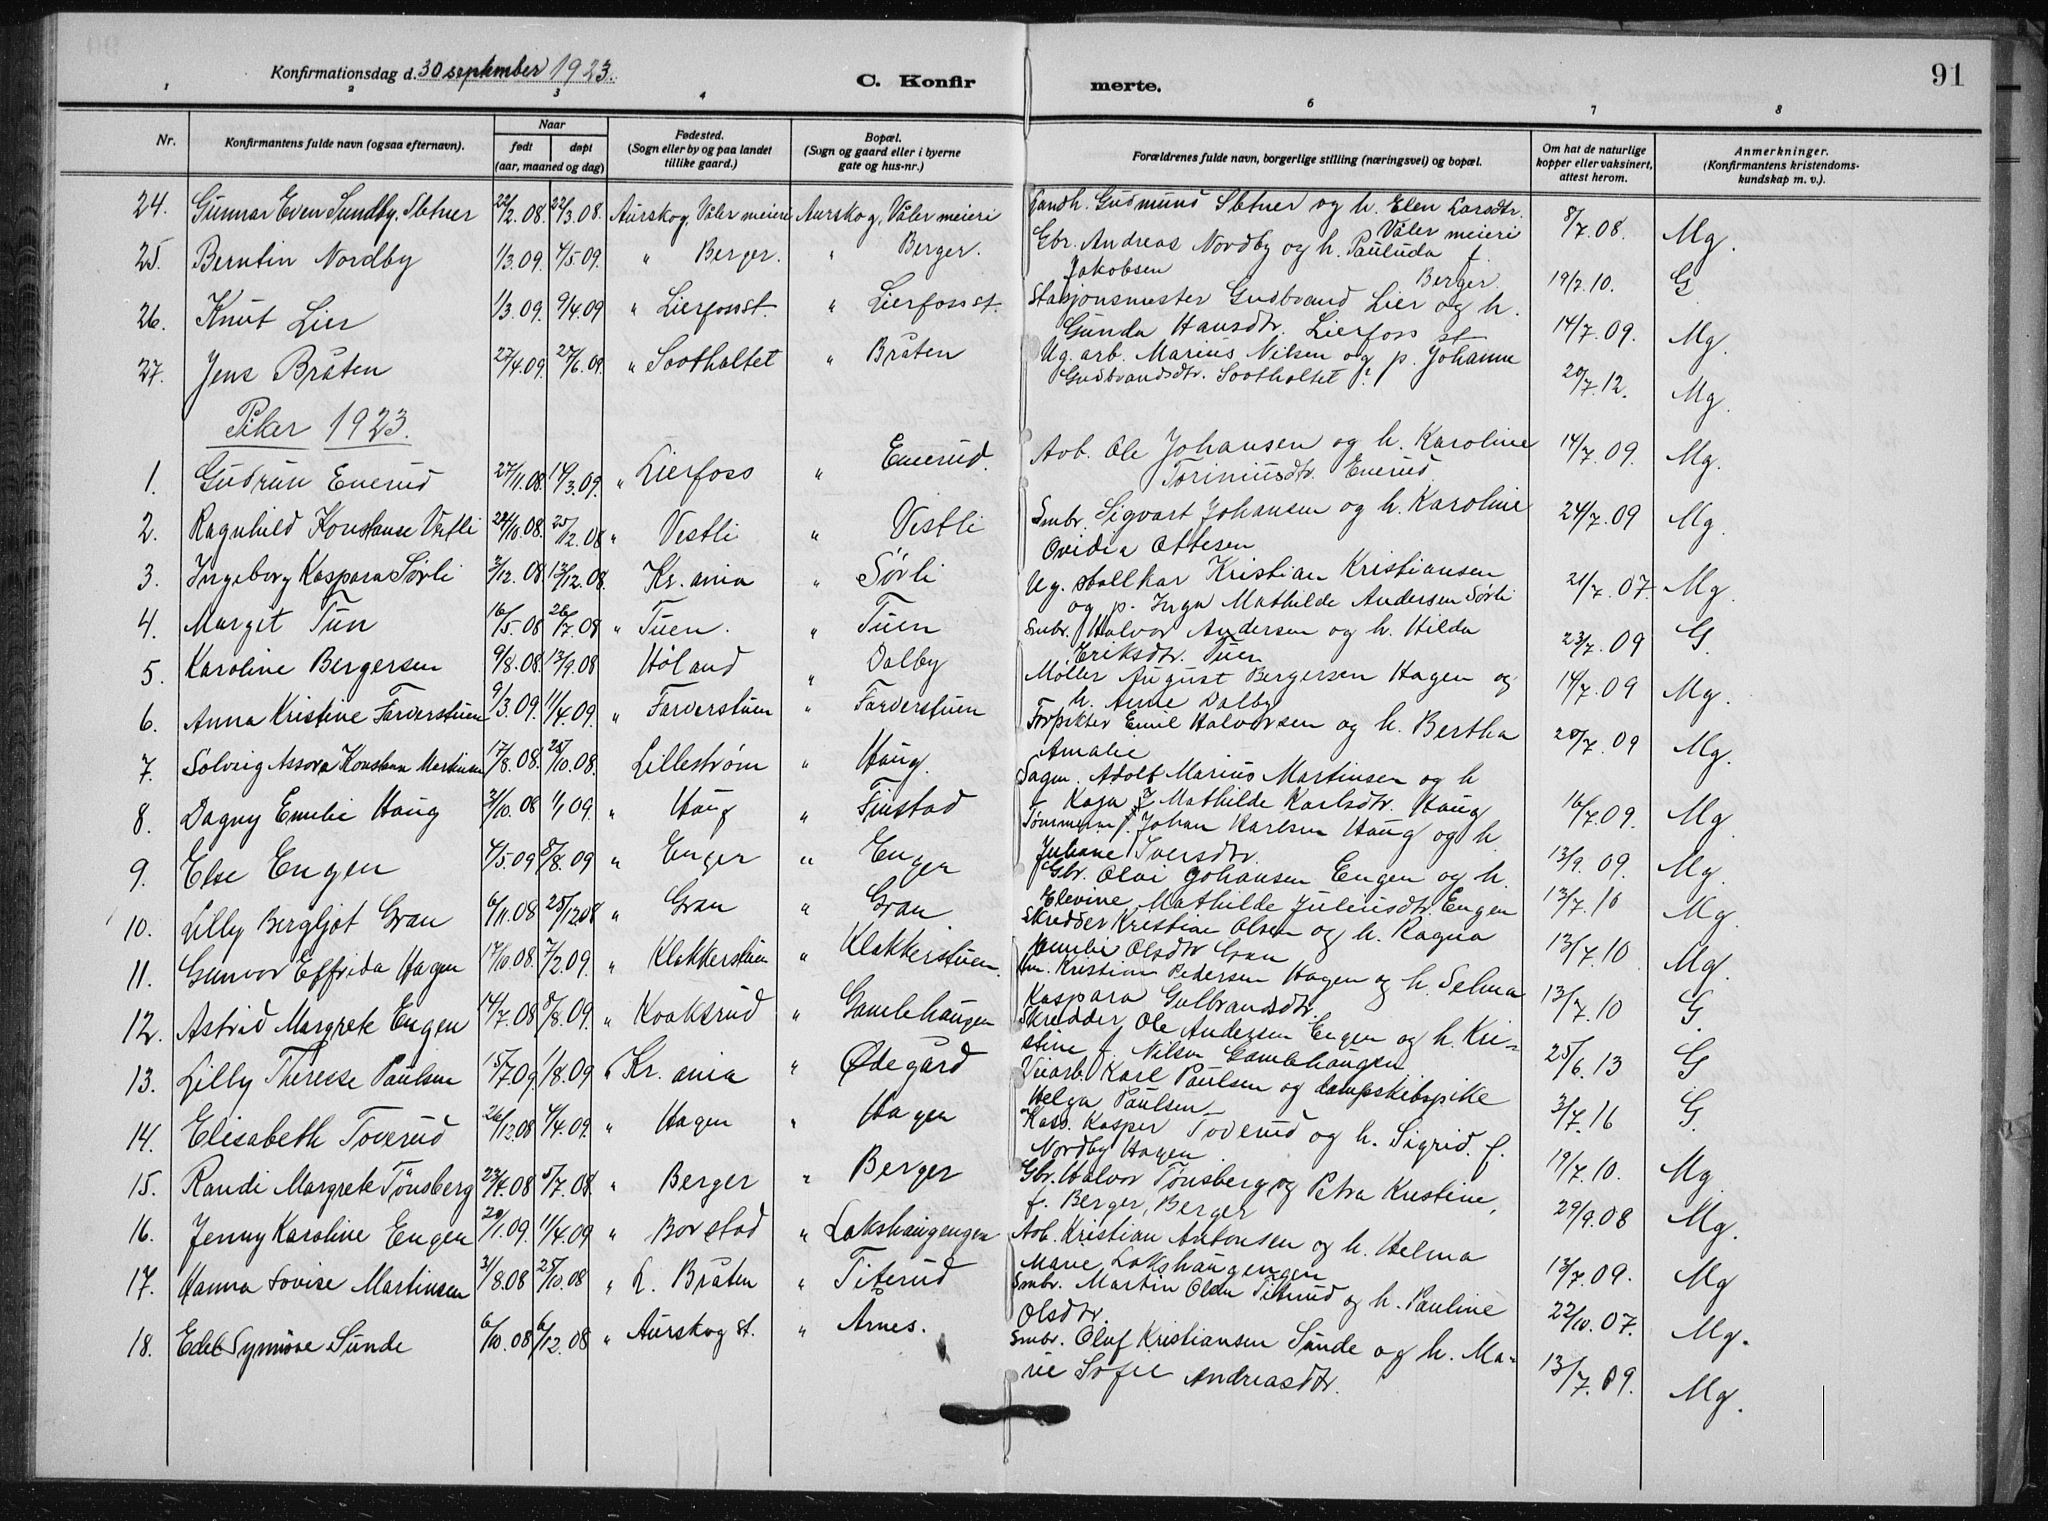 91
Konfirmationsdag d. 30 september 1923.
C. Konfir merte.
1 2 3 4 6 7 8
Nr. Konfirmantens fulde navn (ogsaa efternavn). Naar født døpt (aar, maaned og dag) Fødested. (Sogn eller by og paa landet tillike gaard.) Bopæl. (Sogn og gaard eller i byerne gate og hus-nr.) Forældrenes fulde navn, borgerlige stilling (næringsvei) og bopæl. Om hat de naturlige kopper eller vaksinert, attest herom. Anmerkninger. (Konfirmantens kristendoms-kundskap m. v.).
24. Gunnar Even Sundby, Sletner 22/2.08. 22/3.08. Aurskog, Våler meieri Aurskog, Våler meieri Landh. Gudmund Sletner og h. Elen Larsdtr. Våler meieri 8/7.08. Mg.
25. Berntin Nordby 1/3.09. 4/5.09. " Berger. " Berger. Gbr. Andreas Nordby og h. Pauluda f. Jakobsen Berger 19/7.10. G
26. Knut Lier 1/3.09. 9/4.09 " Lierfoss st. " Lierfoss st. Stasjonsmester Gudbrand Lier og h. Gunda Hansdtr. Lierfoss st 14/7.09. Mg.
27. Jens Bråten 27/4.09. 27/6.09. " Sootholtet " Bråten Ug. arb. Marius Nilsen og p. Johanne Gudbrandsdtr. Sootholtet 20/7.12. Mg.
Piker 1923.
1. Gudrun Enerud 27/11.08. 14/3.09. " Lierfoss " Enerud. Arb. Ole Johansen og h. Karoline Toriniusdtr. Enerud 14/7.09. Mg.
2. Ragnhild Konstanse Vestli 22/10.08. 25/12.08 " Vestli " Vestli Smbr. Sigvart Johansen og h. Karoline Ovidia Ottesen 24/7.09 Mg.
3. Ingeborg Kaspara Sørli 3/12.08. 13/12.08. Kr.ania " Sørli Ug. stallkar Kristian Kristiansen og p. Inga Mathilde Andersen Sørli 21/7.07. Mg.
4. Margit Tun 16/5.08 26/7.08 " Tuen. " Tuen Smbr. Halvor Andersen og h. Hilda Eriksdtr. Tuen 23/7.09 G.
5. Karoline Bergersen 9/8.08. 13/9.08 Høland " Dalby Møller August Bergersen Hagen og h. Anne Dalby 14/7.09 Mg.
6. Anna Kristine Farderstuen 9/3.09. 11/4.09. " Farderstuen " Farderstuen Forpakter Emil Halvorsen og h. Bertha Amalie 20/7.09 Mg.
7. Solveig Assora Konstanse Martinsen 17/8.08. 25/10.08. Lillestrøm " Haug. Sagm. Adolf Marius Martinsen og h Kaja Mathilde Karlsdtr. Haug 16/7.09. Mg
8. Dagny Emilie Haug 3/10.08 1/1.09. " Haug " Finstad Tømmerm. Johan Karlsen Haug og h. Juliane Iversdtr. 13/9.09. Mg.
9. Else Engen 4/5.09 8/8.09 " Enger " Enger Gbr. Olai Johansen Engen og h. Elevine Mathilde Juliusdtr. Engen 13/7.16 Mg.
10. Lilly Bergljot Gran 6/11.08 25/12.08 " Gran " Gran Skredder Kristian Olsen og h. Ragna Emelie Olsdtr Gran 13/7.10. Mg.
11. Gunvor Elfrida Hagen 17/10.08. 7/2.09. " Klakkerstuen " Klakkerstuen. Kristian Pedersen Hagen og h. Selma Kaspara Gulbrandsdtr. 13/7.10 G.
12. Astrid Margrete Engen 14/7.08 8/8.09. " Kooksrud " Gamlehaugen Skredder Ole Andersen Engen og h. Kri-stine f. Nilsen Gamlehaugen 25/6.13 G
13. Lilly Therese Paulsen 15/7.09 1/8.09 " Kr.ania " Ødegård Viarb. Karl Paulsen og dampskibspike Helga Paulsen 3/7.16 G.
14. Elisabeth Toverud 26/12.08 4/4.09. " Hagen " Hagen Kass. Kasper Toverud og h. Sigrid f. Nordby Hagen 19/7.10. Mg
15. Randi Margrete Tønsberg 23/4.08 5/7.08. " Berger " Berger Gbr. Halvor Tønsberg og Petra Kristine, f. Berger, Berger 29/9.08 Mg.
16. Jenny Karoline Engen 20/1.09. 11/4.09 " Borstad " Lakshaugengen Arb. Kristian Antonsen og h. Helma Marie Lakshaugengen 13/7.09. Mg
17. Hanna Lovise Martinsen 31/8.08 25/10.08 " L. Bråten " Titerud Smbr. Martin Olsen Titerud og h. Pauline Olsdtr. 22/10.07. Mg.
18. Edel Synnøve Sunde 6/10.08 6/12.08 " Aurskog st. " Årnes. Smbr. Oluf Kristiansen Sunde og h. Ma-rie Sofie Andreasdtr. 13/7.09. Mg.